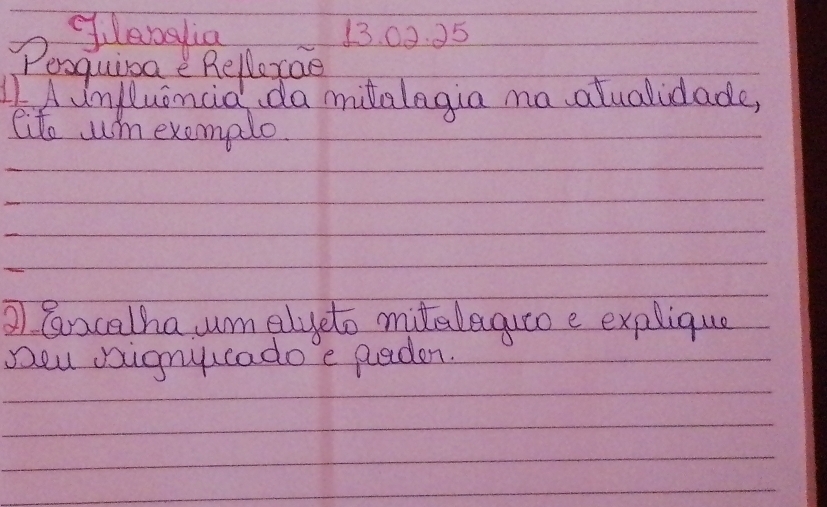 Filosofia 13.02.25
Pesquisa e Reflexão
1) A influência da mitologia na atualidade,
Cite um exemplo.
2) Escolha um objeto mitologico e explique
seu significado e poder.